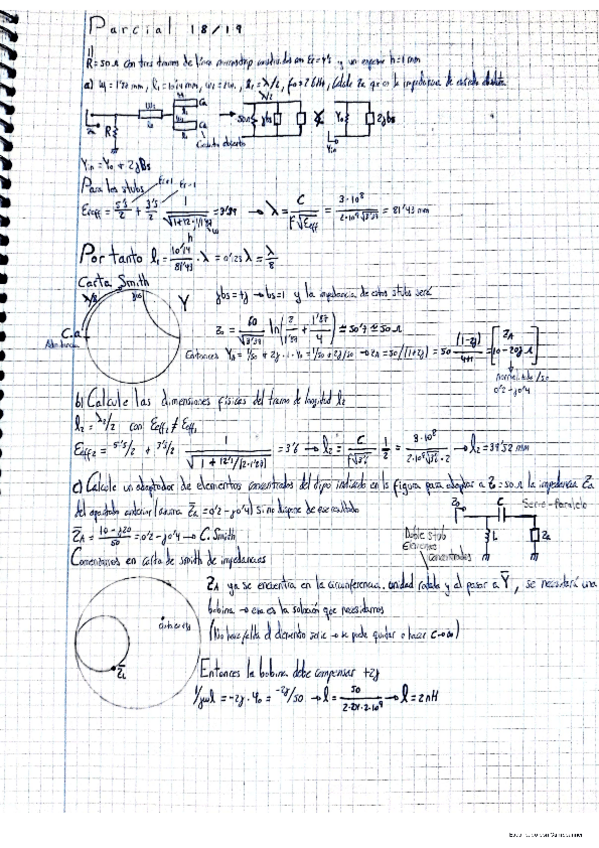 Parcial 18/19
1)
R=50Ω con tres tramos de línea microstrip construidos con εr=4'5 y un espesor h=1mm
a) W1=1'87 mm, l1=10'14 mm, l2=λ/2, f0=2GHz, Calcule ZA que es la impedancia de entrada
W2 Ca
R Ca
Circuito abierto
50Ω jbs λ/2 Y0 2jbs
Yin
Yin = Y0 + 2jBs
Para los stubs
Eeff = 5'5/2 + 3'5/2 · 1/√(1+12·1/1'87) = 3'39 → λ = C/(f√Eeff) = 3·10^8/(2·10^9√3'39) = 81'43 mm
Por tanto l1 = 10'14/81'43 · λ = 0'125 λ = λ/8
Carta Smith
λ/8 Y
C.a
Admitancia
jbs = +j → bs=1 y la impedancia de estos stubs será
Entonces
normalizada /50
0'2-j0'4
b) Calcule las dimensiones físicas del tramo de longitud l2
l2 = λ2/2 con Eeff2 ≠ Eeff1
→ l2 = 39'52 mm
c) Calcule un adaptador de elementos concentrados del tipo indicado en la figura para adaptar a Z=50Ω la impedancia ZA
del apartado anterior (asuma ZA = 0'2 - j0'4) si no dispone de ese resultado
ZA = (10-j20)/50 = 0'2-j0'4 → C. Smith
Z0 C Serie-Paralelo
L ZA
Doble stub
Elementos
concentrados
Comenzamos en carta de smith de impedancias
ZA ya se encuentra en la circunferencia unidad rotada y al pasar a Y, se necesitará una
bobina → esa es la solución que necesitamos
(No hace falta el elemento serie → se puede quitar o hacer C→∞)
Entonces la bobina debe compensar +2j
1/jωL = -2j·Y0 = -2j/50 → L = 50/(2·2π·2·10^9) → L = 2nH